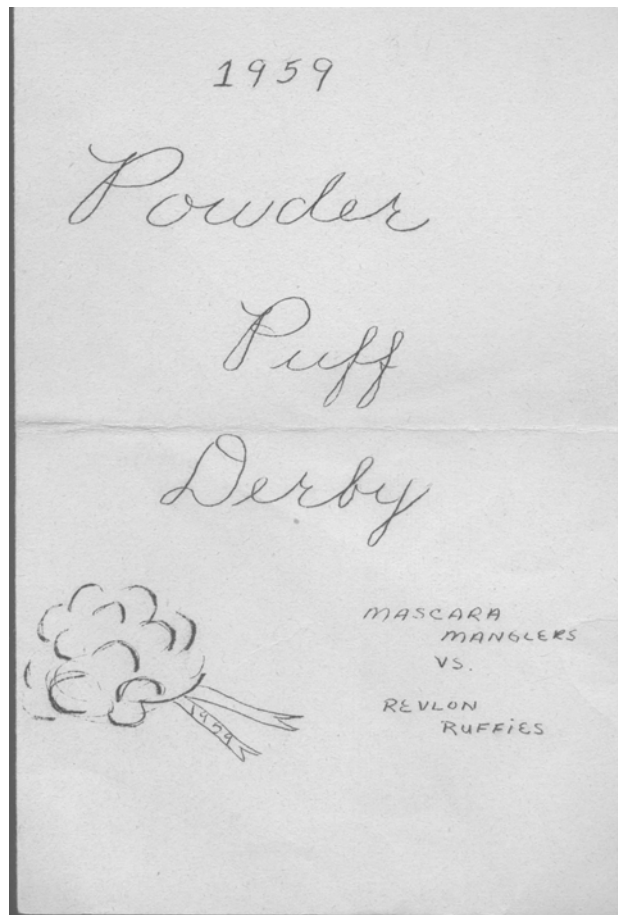 1959
Powder
Puff
Derby
MASCARA
MANGLERS
VS.
REVLON
RUFFiES
1959